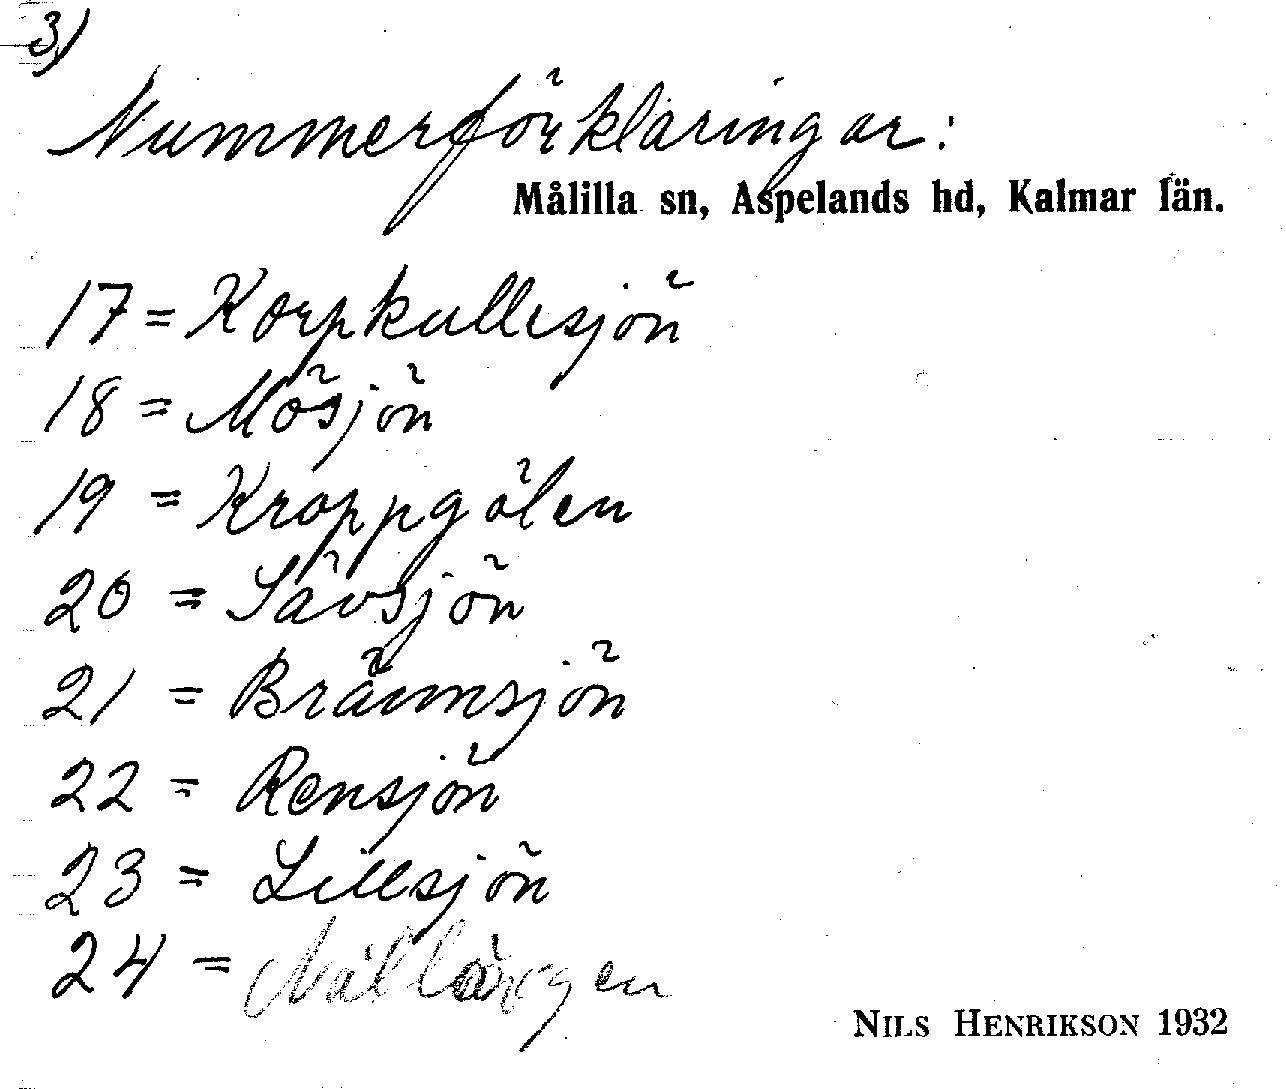 3)
Nummerförklaringar:
Målilla sn, Aspelands hd, Kalmar län.
17 = Korpkullesjön
18 = Mösjön
19 = Kroppgölen
20 = Sävsjön
21 = Brännsjön
22 = Rensjön
23 = Lillsjön
24 =
NILS HENRIKSON 1932